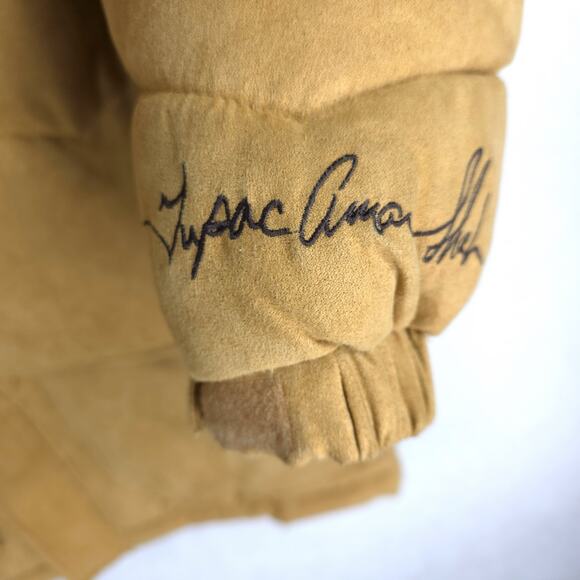 Tupac Amaru Sha